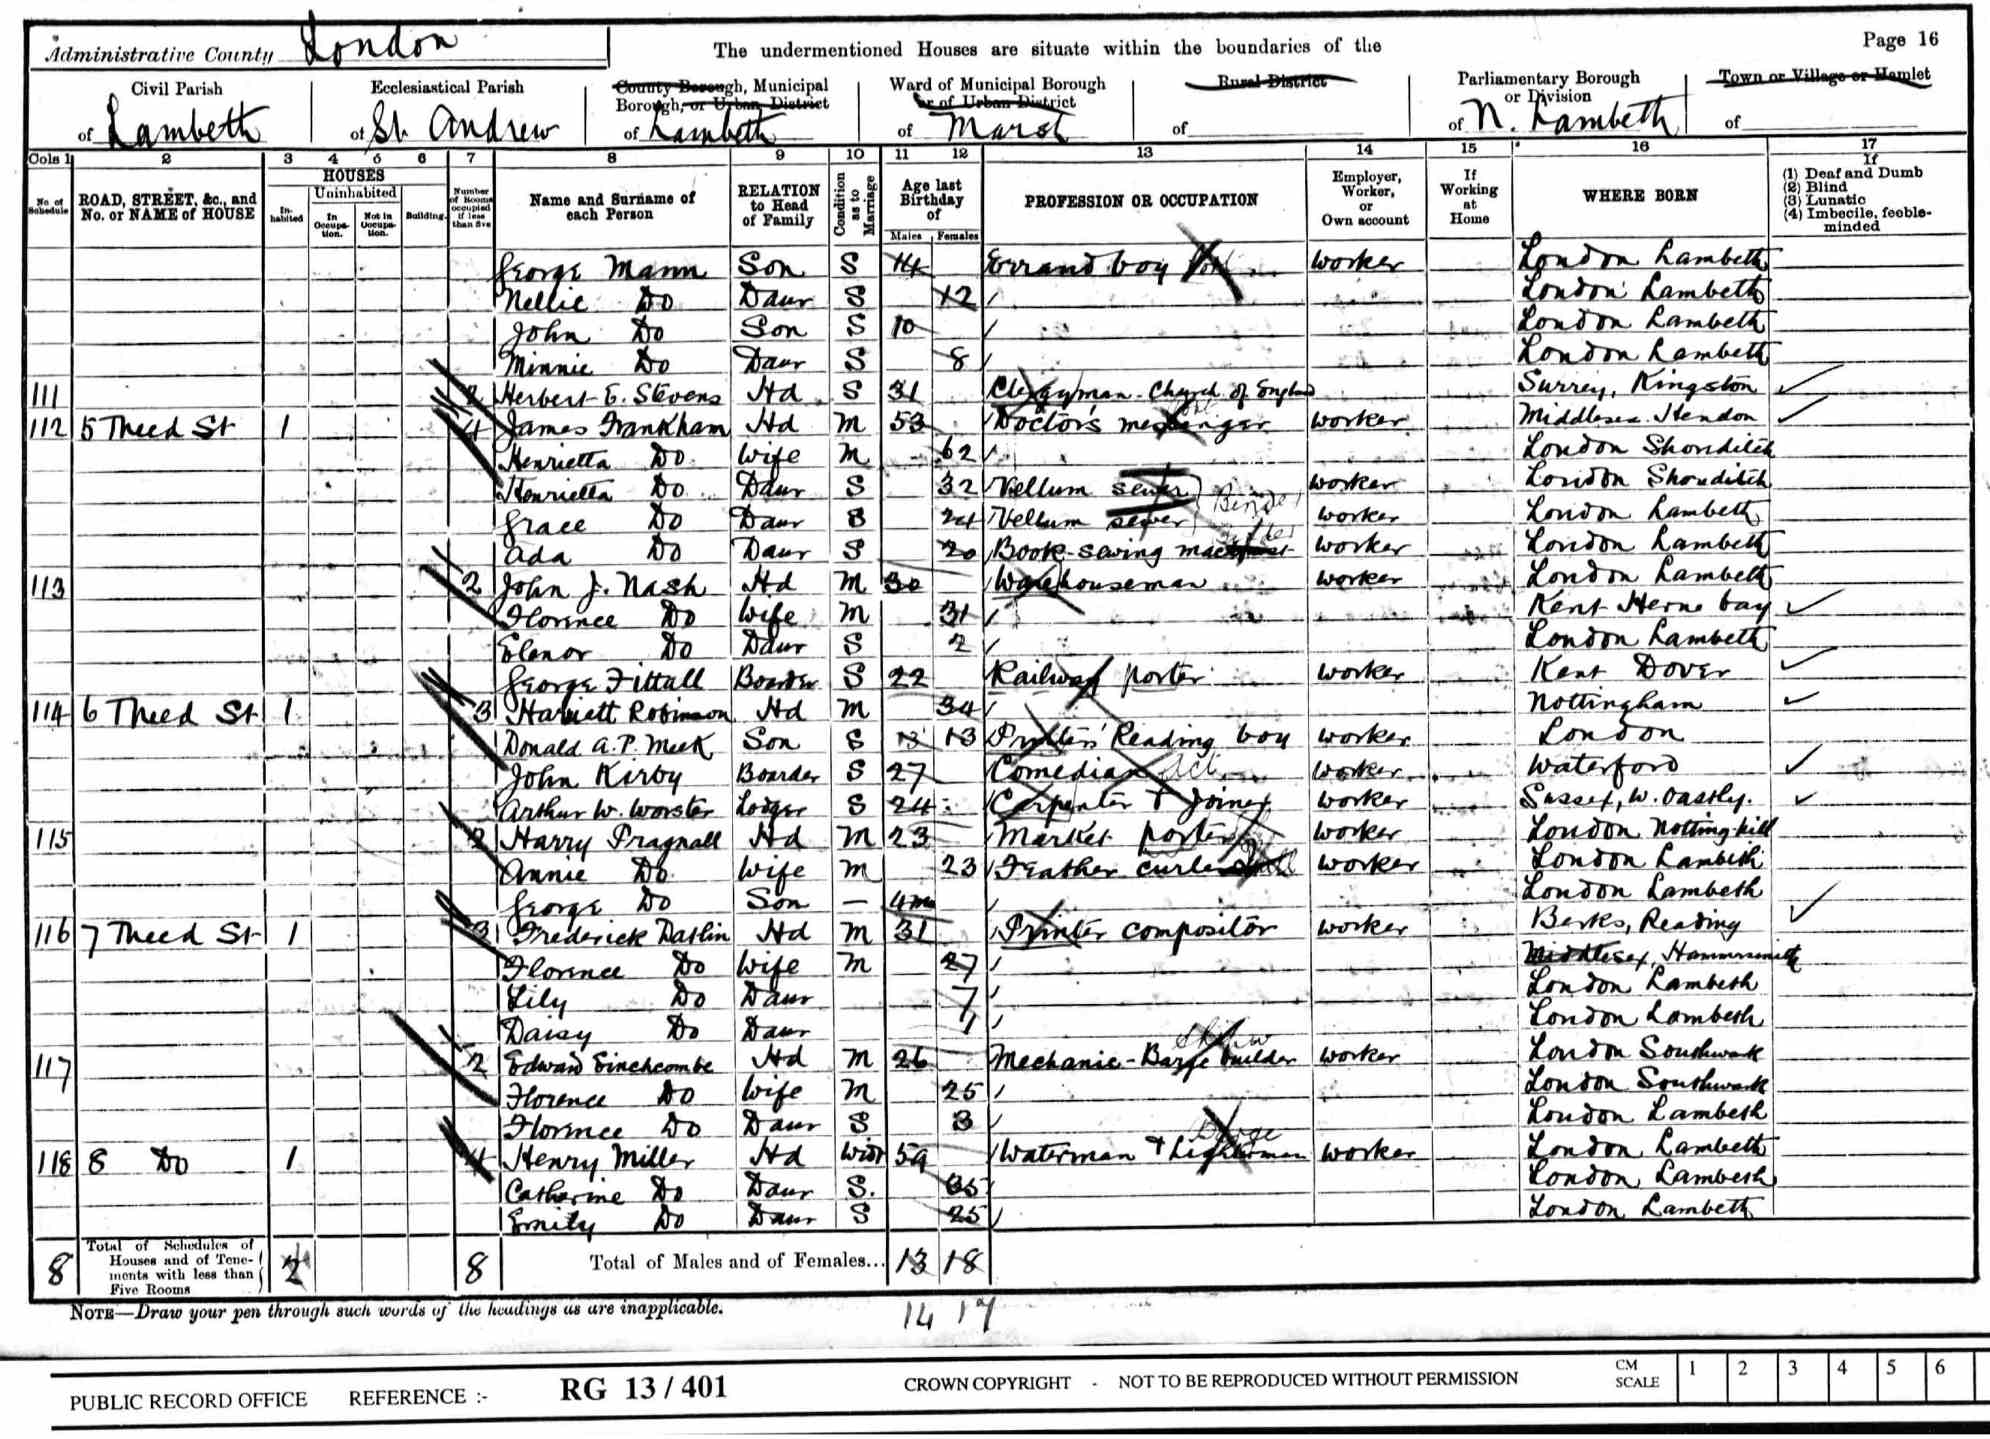 Administrative County London
The undermentioned Houses are situate within the boundaries of the
Page 16
Civil Parish of Lambeth
Ecclesiastical Parish of St. Andrew
County Borough, Municipal Borough, or Urban District of Lambeth
Ward of Municipal Borough or of Urban District of Marsh
Rural District of
Parliamentary Borough or Division of N. Lambeth
Town or Village or Hamlet of
Cols 1 2 3 4 5 6 7 8 9 10 11 12 13 14 15 16 17
No. of Schedule
ROAD, STREET, &c., and No. or NAME of HOUSE
HOUSES
Inhabited
Uninhabited
In Occupation.
Not in Occupation.
Building.
Number of Rooms occupied if less than five
Name and Surname of each Person
RELATION to Head of Family
Condition as to Marriage
Age last Birthday of
Males Females
PROFESSION OR OCCUPATION
Employer, Worker, or Own account
If Working at Home
WHERE BORN
If
(1) Deaf and Dumb
(2) Blind
(3) Lunatic
(4) Imbecile, feeble-minded
George Mann Son S 14 Errand boy worker London Lambeth
Nellie Do Daur S 12 London Lambeth
John Do Son S 10 London Lambeth
Minnie Do Daur S 8 London Lambeth
111 2 Herbert E. Stevens Hd S 31 Clergyman - Church of England Surrey, Kingston
112 5 Theed St 1 4 James Frankham Hd M 53 Doctor's messenger worker Middlesex Hendon
Henrietta Do Wife M 62 London Shoreditch
Henrietta Do Daur S 32 Vellum sewer worker London Shoreditch
Grace Do Daur S 24 Vellum sewer worker London Lambeth
Ada Do Daur S 20 Book-sewing worker London Lambeth
113 2 John J. Nash Hd M 30 Warehouseman worker London Lambeth
Florence Do Wife M 31 Kent Herne bay
Elenor Do Daur S 2 London Lambeth
George Fittall Boarder S 22 Railway porter worker Kent Dover
114 6 Theed St 1 3 Harriett Robinson Hd M 34 Nottingham
Donald A. P. Meek Son S 13 13 Printers' Reading boy worker London
John Kirby Boarder S 27 Comedian worker Waterford
Arthur W. Worster Lodger S 24 Carpenter & Joiner worker Sussex, W.
115 2 Harry Pragnall Hd M 23 Market porter worker London Notting-hill
Annie Do Wife M 23 Feather curler worker London Lambeth
George Do Son — 4m London Lambeth
116 7 Theed St 1 3 Frederick Hd M 31 Printer compositor worker Berks, Reading
Florence Do Wife M 27 Middlesex, Hammersmith
Lily Do Daur 7 London Lambeth
Daisy Do Daur 1 London Lambeth
117 2 Edward Hd M 26 Mechanic - Barge builder worker London Southwark
Florence Do Wife M 25 London Southwark
Florence Do Daur S 3 London Lambeth
118 8 Do 1 4 Henry Miller Hd Widr 59 Waterman & Lighterman worker London Lambeth
Catherine Do Daur S. 35 London Lambeth
Emily Do Daur S 25 London Lambeth
8 Total of Schedules of Houses and of Tenements with less than Five Rooms 8 Total of Males and of Females... 13 18
NOTE—Draw your pen through such words of the headings as are inapplicable.
14 17
PUBLIC RECORD OFFICE REFERENCE :- RG 13 / 401 CROWN COPYRIGHT - NOT TO BE REPRODUCED WITHOUT PERMISSION CM SCALE 1 2 3 4 5 6